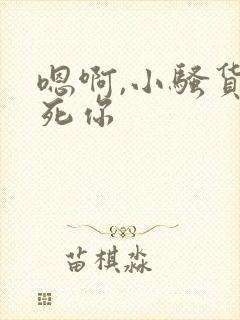 嗯啊,小骚货
死你
苗棋淼